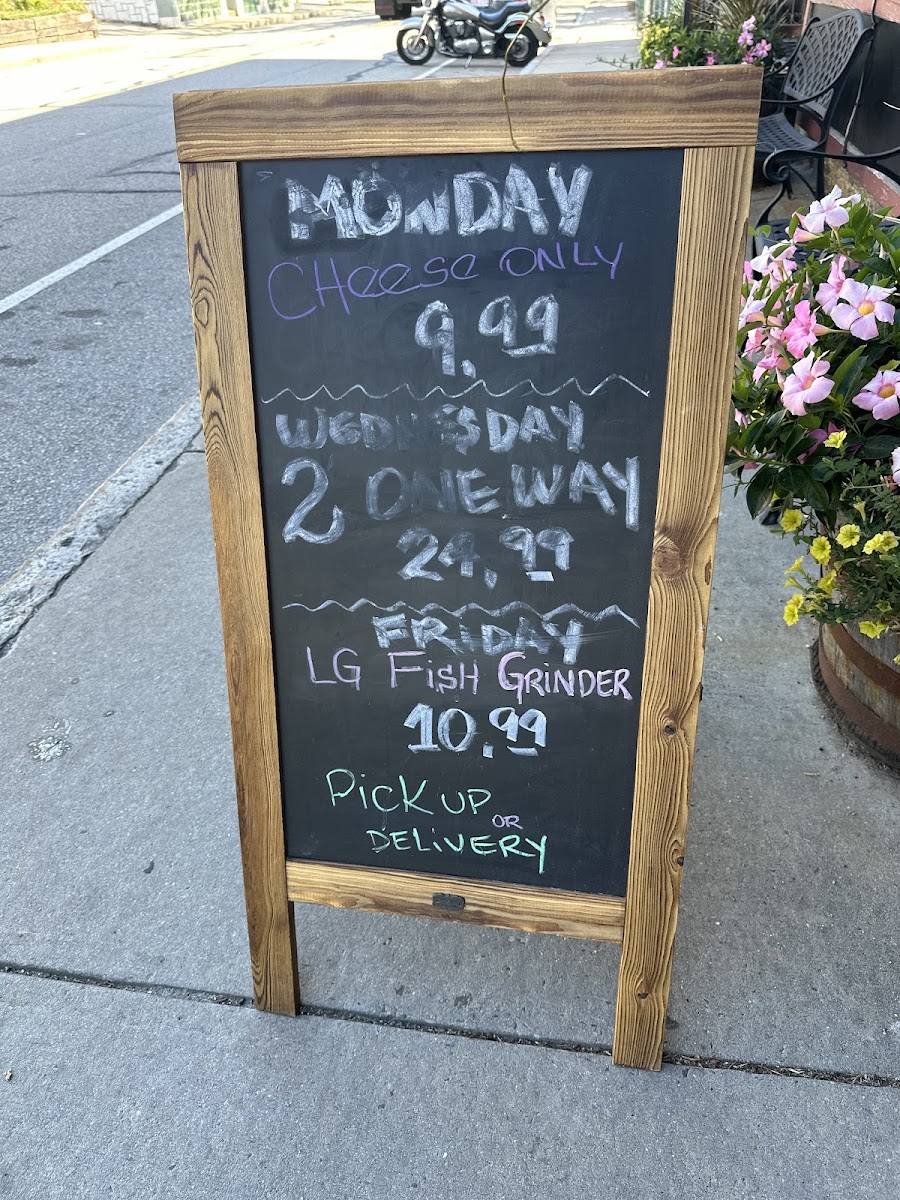 MONDAY
CHeese ONLY
9.99
WEDNESDAY
2 ONE WAY
24.99
FRiDAY
LG FiSH GRiNDER
10.99
PicK UP
OR
DELiVERY